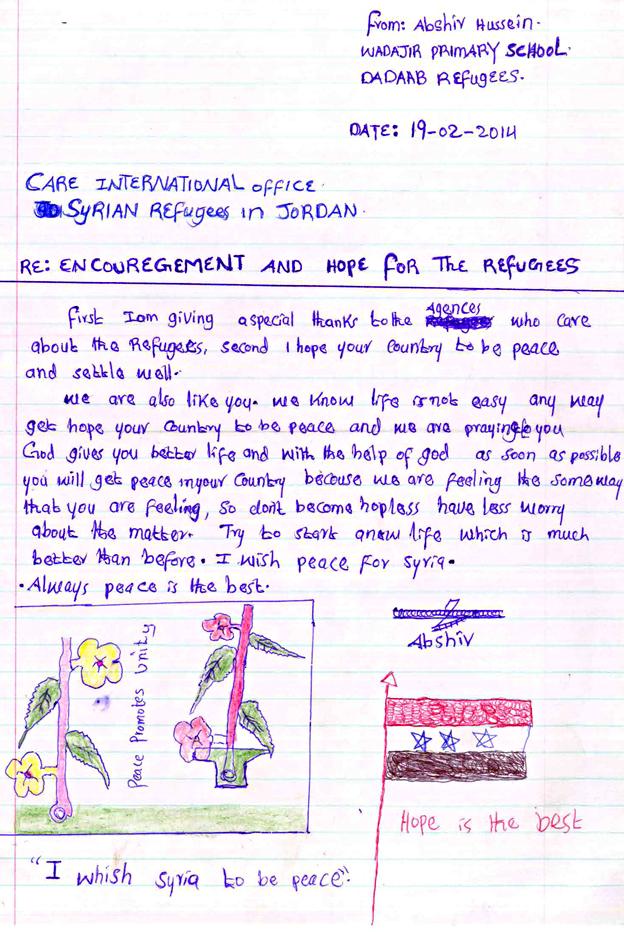 from: Abshiv Hussein.
WADAJIR PRIMARY SCHOOL.
DADAAB Refugees.
DATE: 19-02-2014
CARE INTERNATIONAL office.
SYRIAN Refugees in JORDAN.
RE: ENCOUREGEMENT AND HOPE foR The REFUGIEES
first Iam giving aspecial thanks to the Agences who care
about the Refugees, second I hope your Country to be peace
and settle well.
we are also like you. we know life is not easy any way
get hope your Country to be peace and we are praying to you
God gives you better life and with the help of god as soon as possible
you will get peace in your Country becouse we are feeling the same way
that you are feeling, so dont become hopless have less worry
about the matter. Try to start anew life which is much
better than before. I wish peace for syria.
. Always peace is the best.
Abshiv
Peace Promotes Unity
Hope is the best
"I whish syria to be peace".